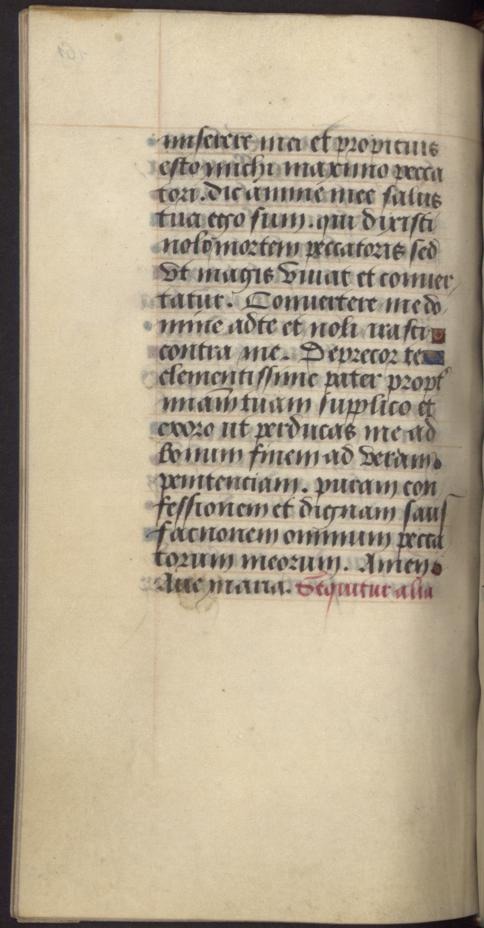 miserere mei et propitius
esto michi maximo pecca
tori. dic anime mee salus
tua ego sum. qui dixisti
nolo mortem peccatoris sed
vt magis viuat et conuer
tatur. Conuertere me do
mine ad te et noli irasci
contra me. Deprecor te
clementissime pater propt
miam tuam supplico et
exoro ut perducas me ad
bonum finem ad veram
penitenciam. puram con
fessionem et dignam satis
factionem omnium pecca
torum meorum. Amen
Aue maria. Sequitur alia